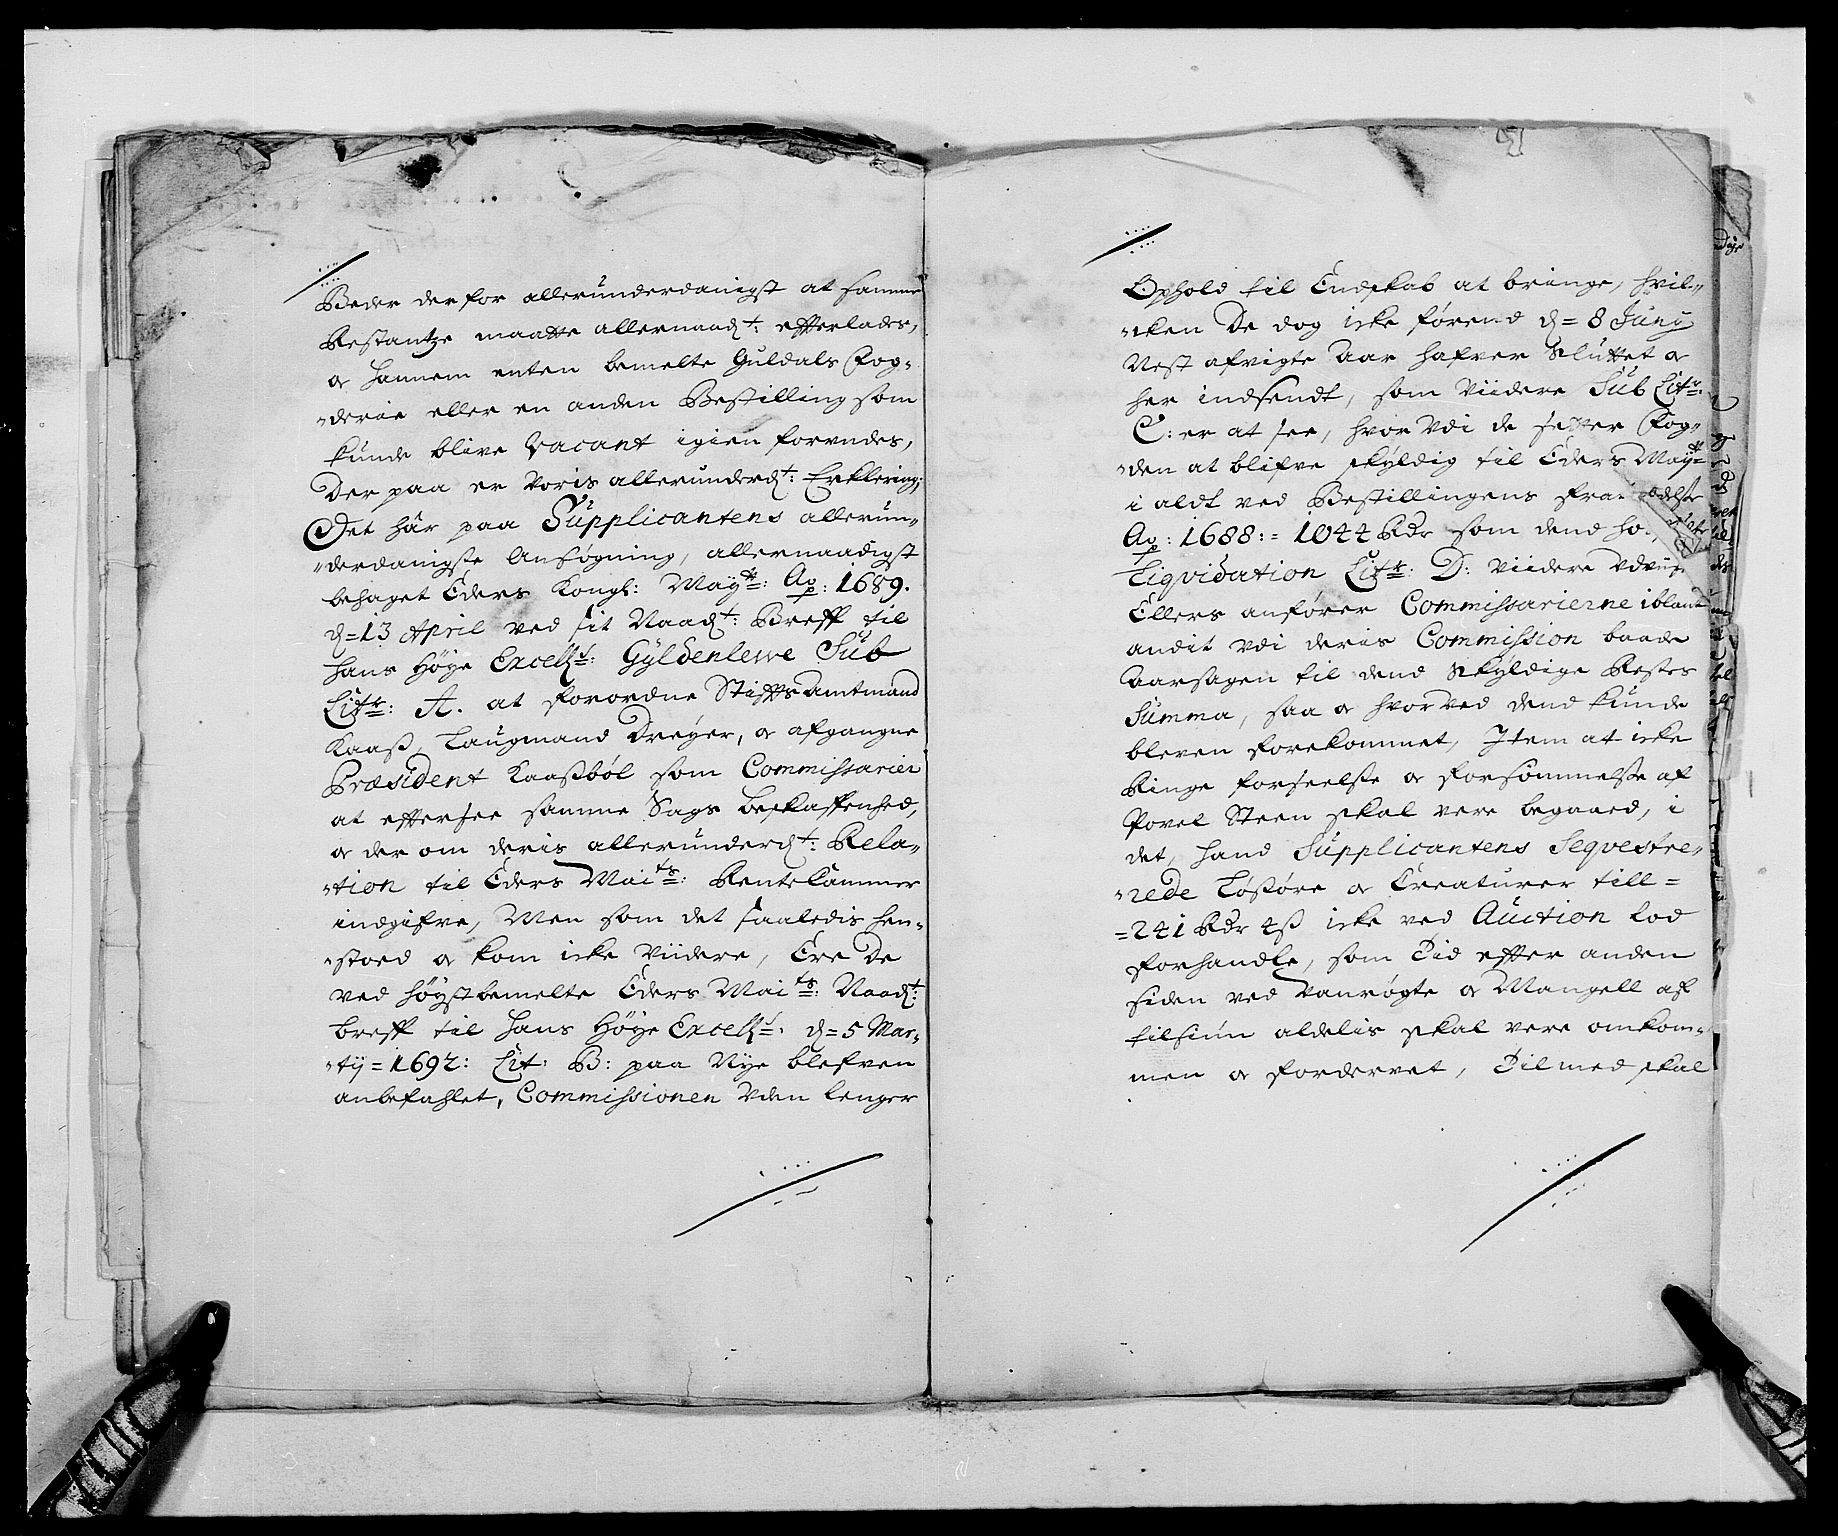 Beder der for allerunderdanigst at samme
Restantze maatte allernaadt: efterlades,
og hannem enten bemelte Guldals Fog-
derie eller en anden Bestilling som
kunde blive vacant igien forundes,
Der paa er Voris allerunderdt: Erklering;
Det hâr paa Supplicantens allerun-
derdanigste Ansøgning, allernaadigst
behaget Eders Kongl: Maytt: Ao: 1689.
d= 13 April ved sit Naadt: Breff til
hans Høye Excellt: Gyldenlewe Sub
Littr: A. at forordne Stiftsamtmand
Kaasz, Laugmand Dreyer, og afgangne
Præsident Kaaszbøl som Commissarier
at eftersee samme Sags beskaffenhed,
og der om deris allerunderdt: Rela-
tion til Eders Maits: Rentekammer
indgifve, Men som det saaledis hen-
stoed og kom icke viidere, Ere De
ved høystbemelte Eders Maits: Naadt:
breff til hans Høye Excellt: d= 5 Mar-
tij = 1692: Lit: B: paa Nye blefven
anbefahlet, Commissionen Uden lenger
Ophold til Endskab at bringe, hvil-
cken De dog icke førend d= 8 Junij
Nest afvigte Aar hafver Sluttet og
her indsendt, som Viidere Sub Littr:
C: er at see, hvor Udi de setter Fog-
den at blifve skyldig til Eders Maytt
i aldt ved Bestillingens
Ao: 1688: = 1044 Rdr som dend
Liqvidation Littr: D: Viidere
Ellers anfører Commissarierne iblant
andit Udi deris Commission baade
Aarsagen til dend Skyldige Restes
Summa, saa og hvor ved dend kunde
bleven forekommet, Item at icke
Ringe forseelse og forsømmelse af
Povel Steen skal vere begaaed, i
det, hand Supplicantens Seqvestre-
rede Løszøre og Creaturer till =
= 241 Rdr 4 ß icke ved Auction lod
forhandle, som Tid efter anden
siden ved Vanrøgte og Mangell af
tilsiun aldelis skal vere omkom-
men og fordervet, Til med skal